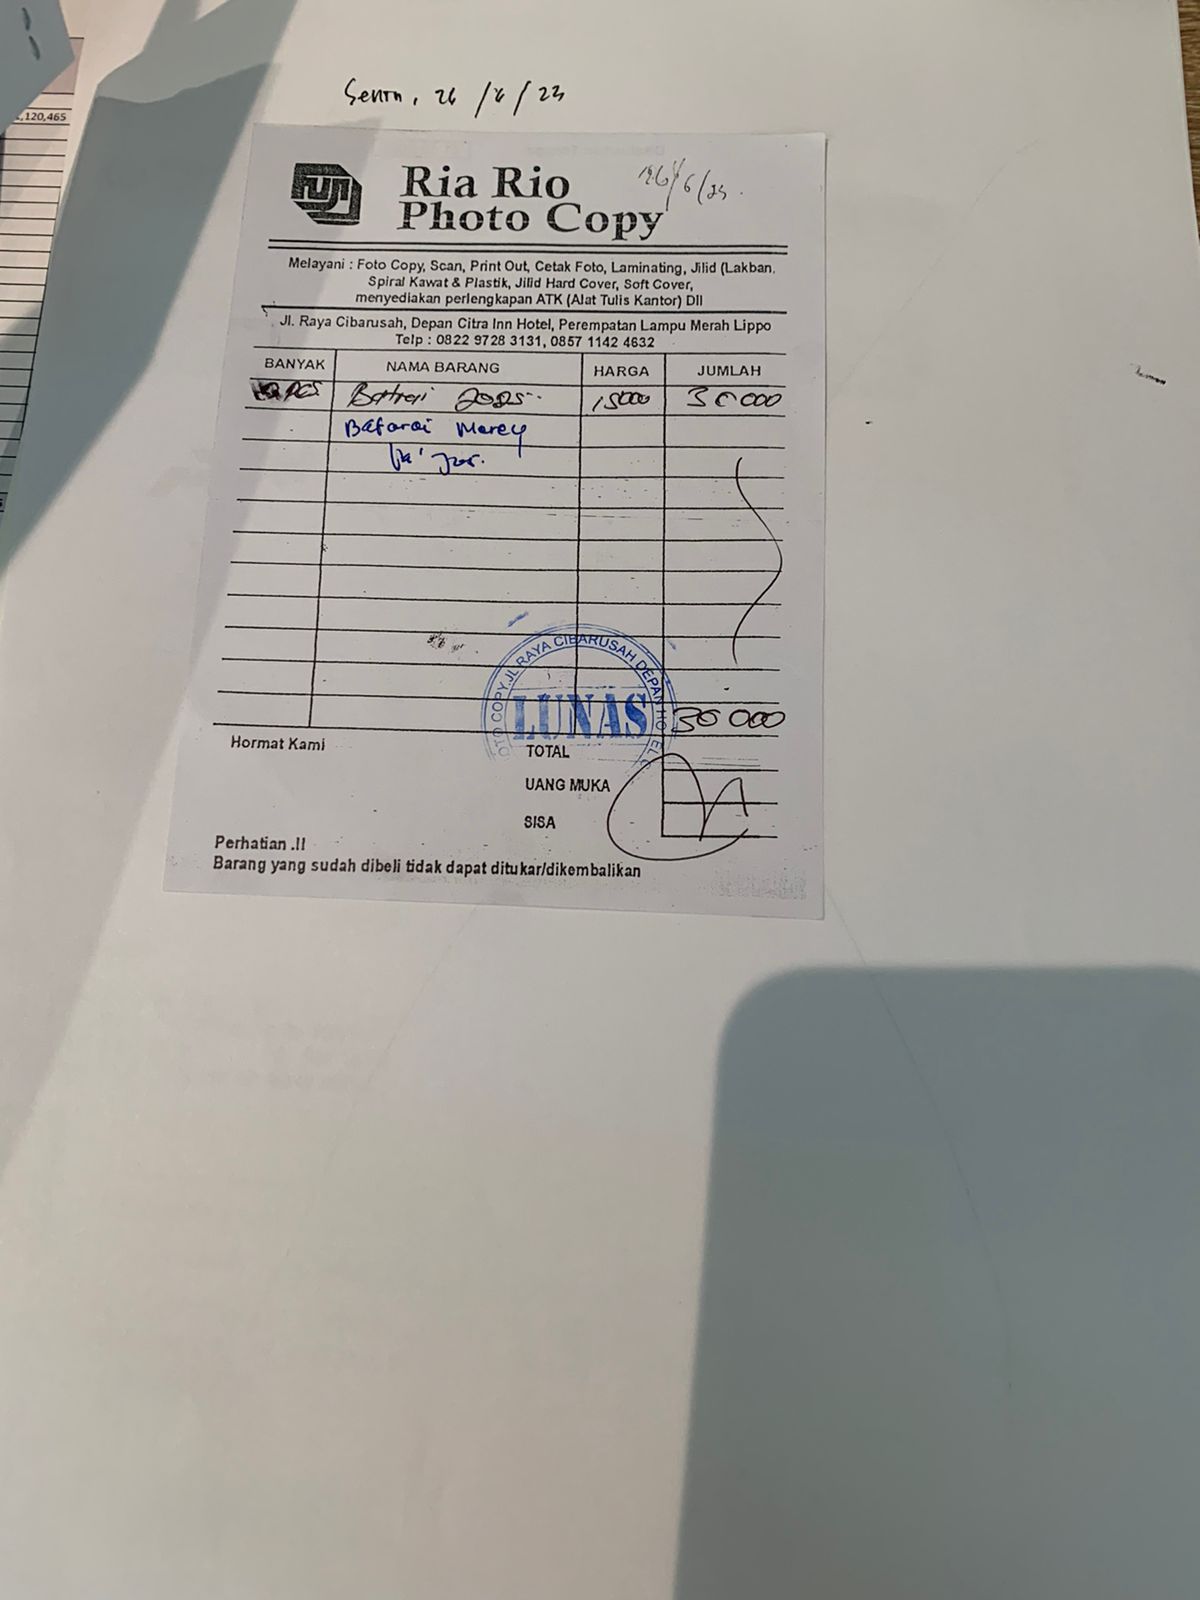 ,120,465
Senin, 26 /6/23
Ria Rio
Photo Copy
26/6/23
Melayani : Foto Copy, Scan, Print Out, Cetak Foto, Laminating, Jilid (Lakban,
Spiral Kawat & Plastik, Jilid Hard Cover, Soft Cover,
menyediakan perlengkapan ATK (Alat Tulis Kantor) Dll
Jl. Raya Cibarusah, Depan Citra Inn Hotel, Perempatan Lampu Merah Lippo
Telp : 0822 9728 3131, 0857 1142 4632
BANYAK NAMA BARANG HARGA JUMLAH
PCS Batrai 2025 15000 30 000
Batarai
OTO COPY.JL RAYA CIBARUSAH DEPAN HOTEL C
LUNAS
30 000
Hormat Kami
TOTAL
UANG MUKA
SISA
Perhatian .!!
Barang yang sudah dibeli tidak dapat ditukar/dikembalikan